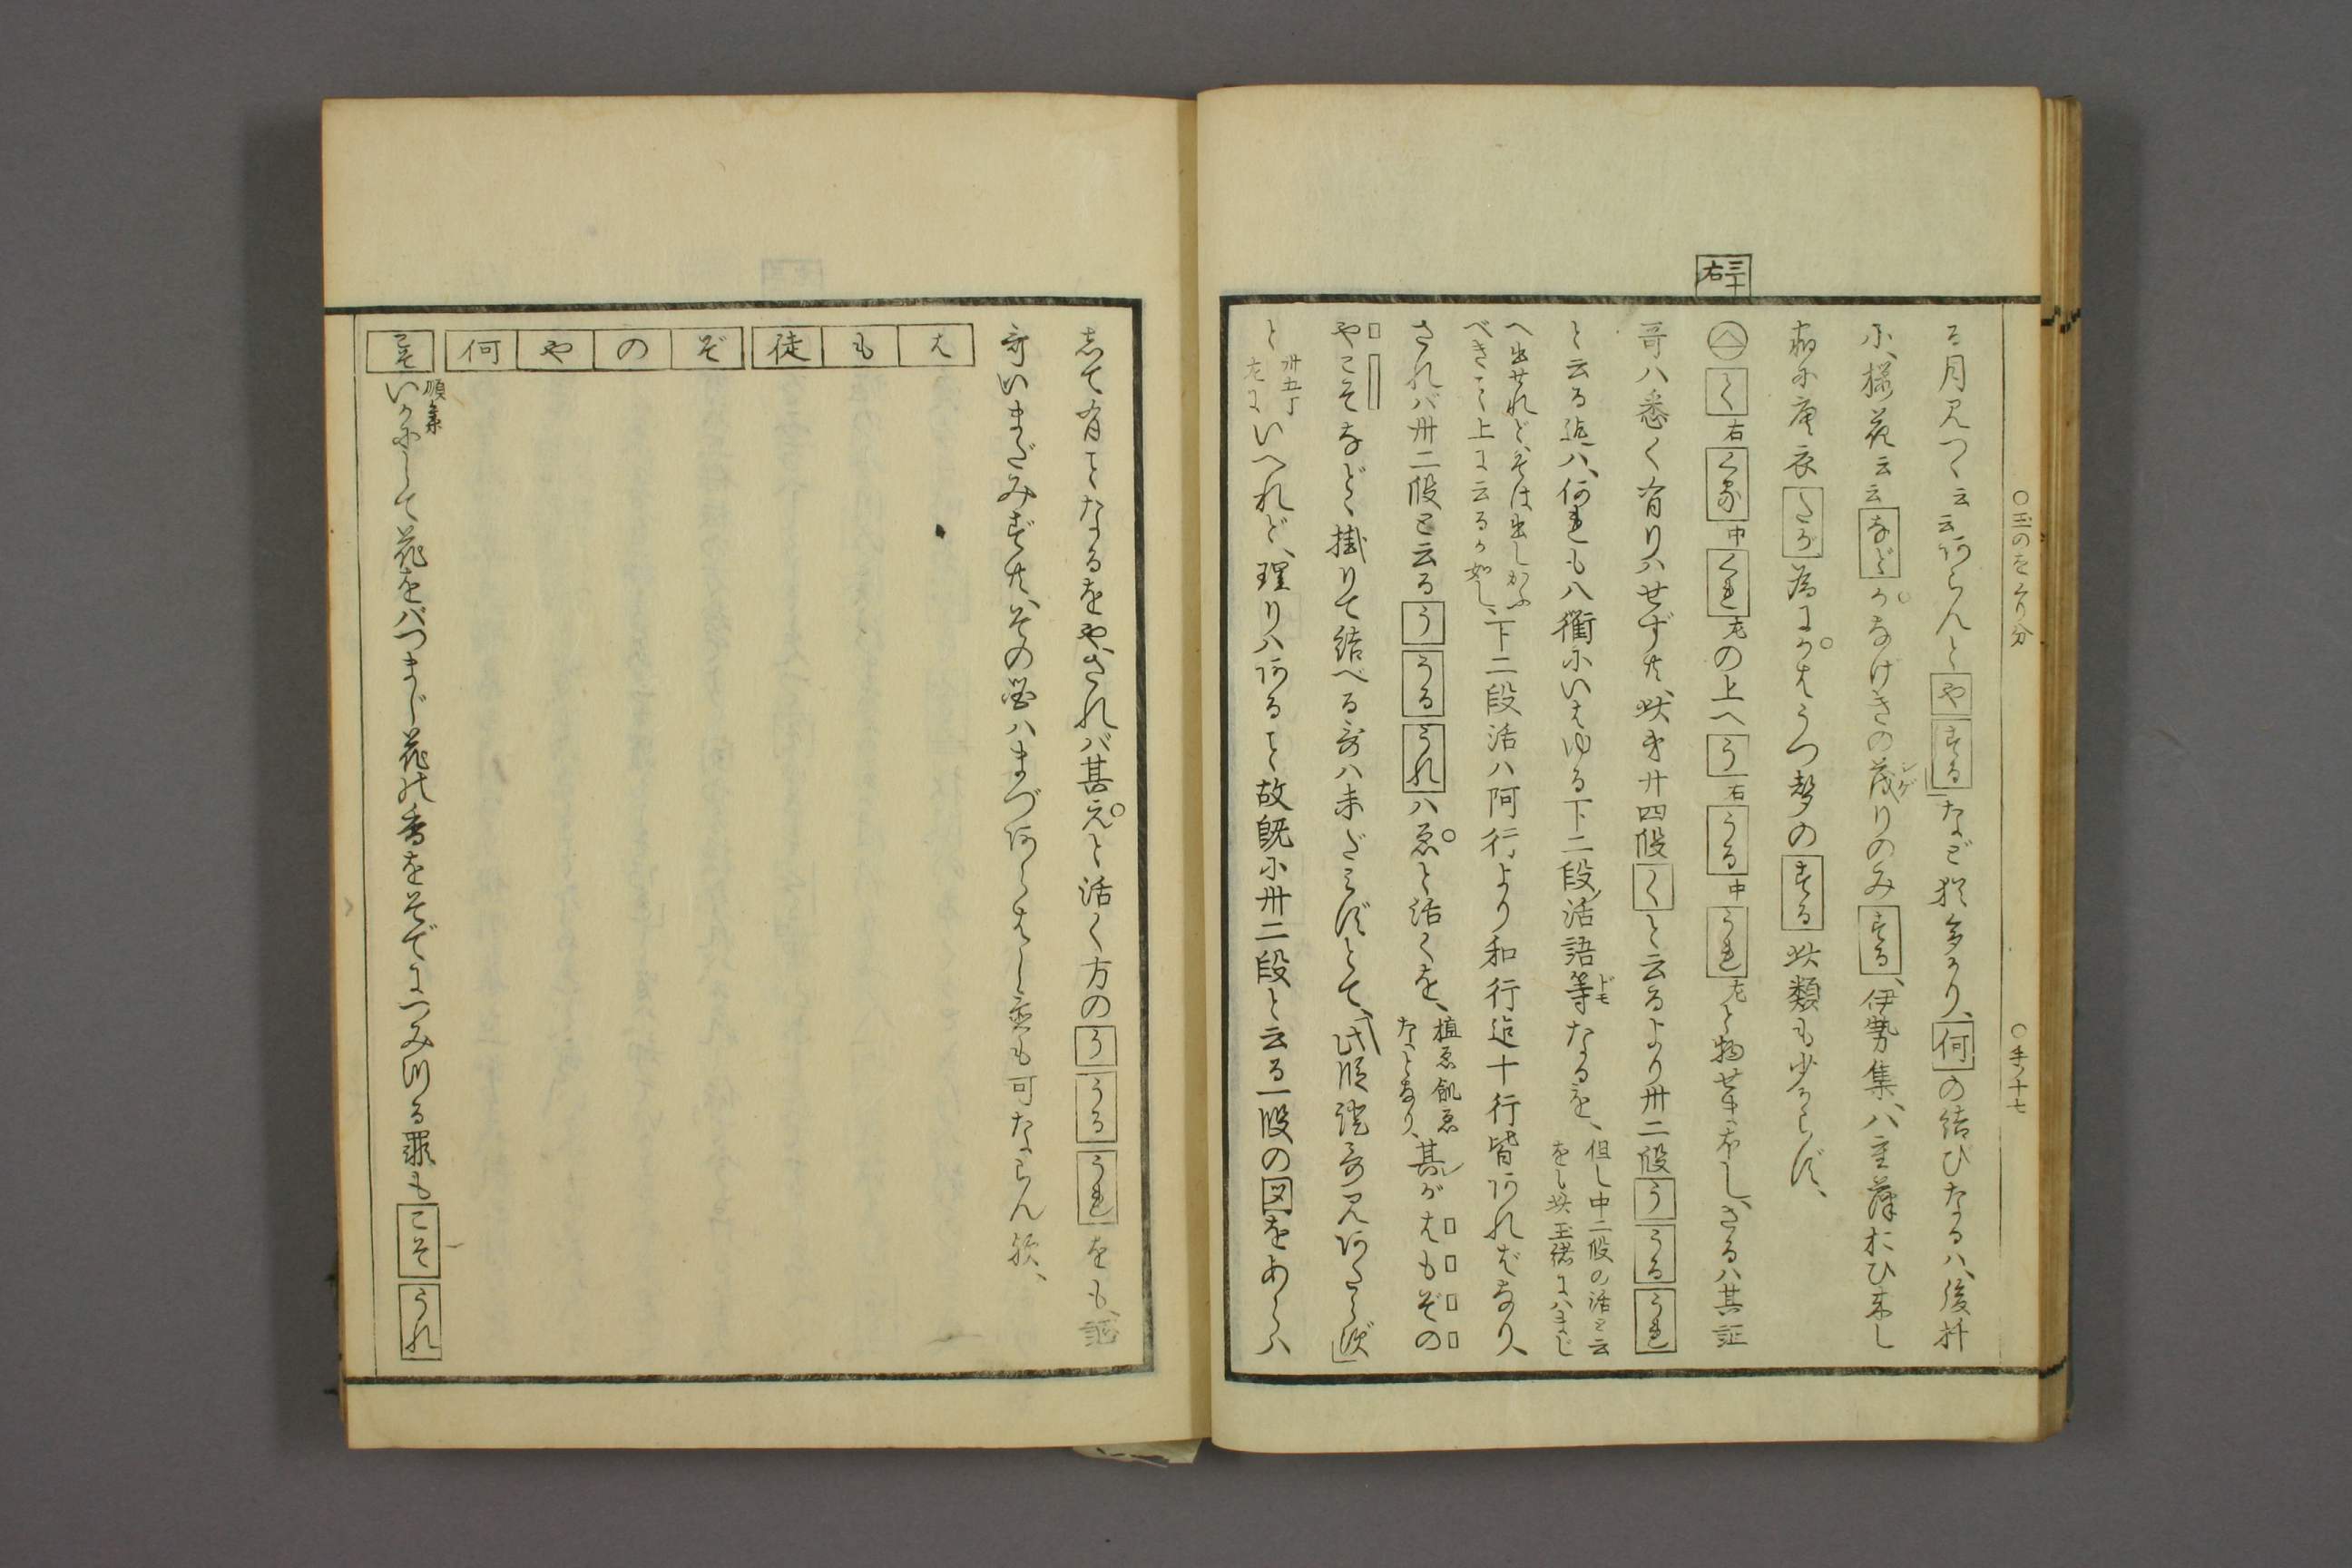 ○玉のをくり分 ○手ノ十七
三十右
る月見つゝ云云何らんと や する など猶多かり、何の結びなるハ、後拝
に、桜花云云 など かなげきの茂シゲりのみ する、伊勢集、八重葎おひ来し
宿に唐衣 たが 為にかはうつ声の する 此類も少からず、
八 く 右 くる 中 くれ 左の上へ う 右 うる 中 うれ 左と物せま布し、さるハ其証
哥ハ悉く有りハせず共、此才廿四段 く と云るより卅二段 う うる うれ
と云る迄ハ、何れも八衢にいはゆる下二段ノ活語等ドモなるを、
但し中二段の活と云
をし此玉緒にハまじ
へ出せれど、そは出しかふ
べきこと上に云るか如し、
下二段活ハ阿行より和行迄十行皆何れバなり、
されバ卅二段と云る う うる うれ ハゑと活くを、
植ゑ飢ゑ
などなり、
其レがはもぞの
やこそなど掛りて結べる哥ハ未だミずとて、「此段証哥見何たらず」
と
卅五丁
左に
いへれど、理りハ何ること故既に卅二段と云る一段の図をあらハ
志て有ことなるをや、されバ其えと活く方の う うる うれ をも、証
哥いまだみず共、その図ハまづ何らはし置も可ならん歟、
は
も
徒
ぞ
の
や
何
こそ
順集
いかにして花をバつまじ花の香をそでにつみける罪も こそ うれ